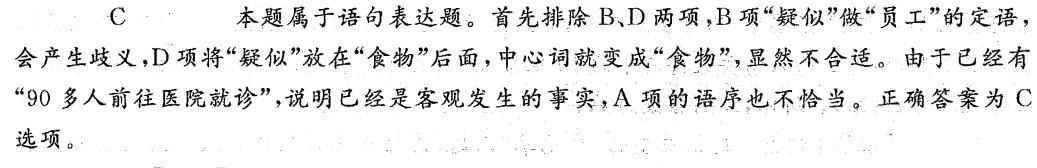 C 本题属于语句表达题。首先排除 B、D 两项,B 项“疑似”做“员工”的定语,
会产生歧义,D 项将“疑似”放在“食物”后面,中心词就变成“食物”,显然不合适。由于已经有
“90 多人前往医院就诊”,说明已经是客观发生的事实,A 项的语序也不恰当。正确答案为 C
选项。